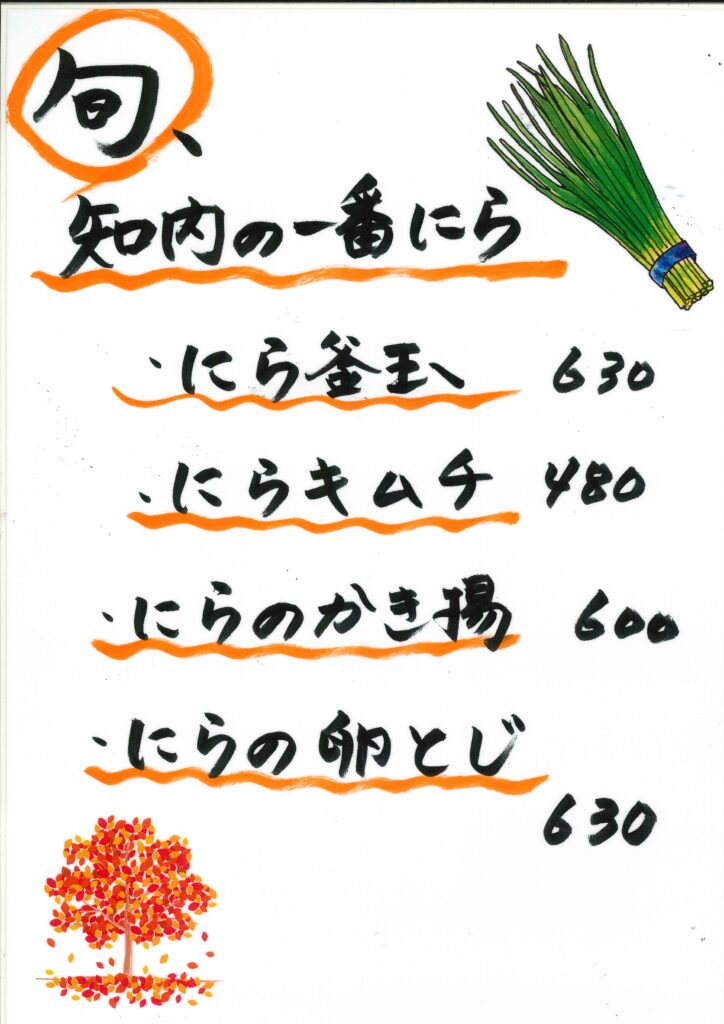 旬、
知内の一番にら
・にら釜玉 630
・にらキムチ 480
・にらのかき揚 600
・にらの卵とじ
630